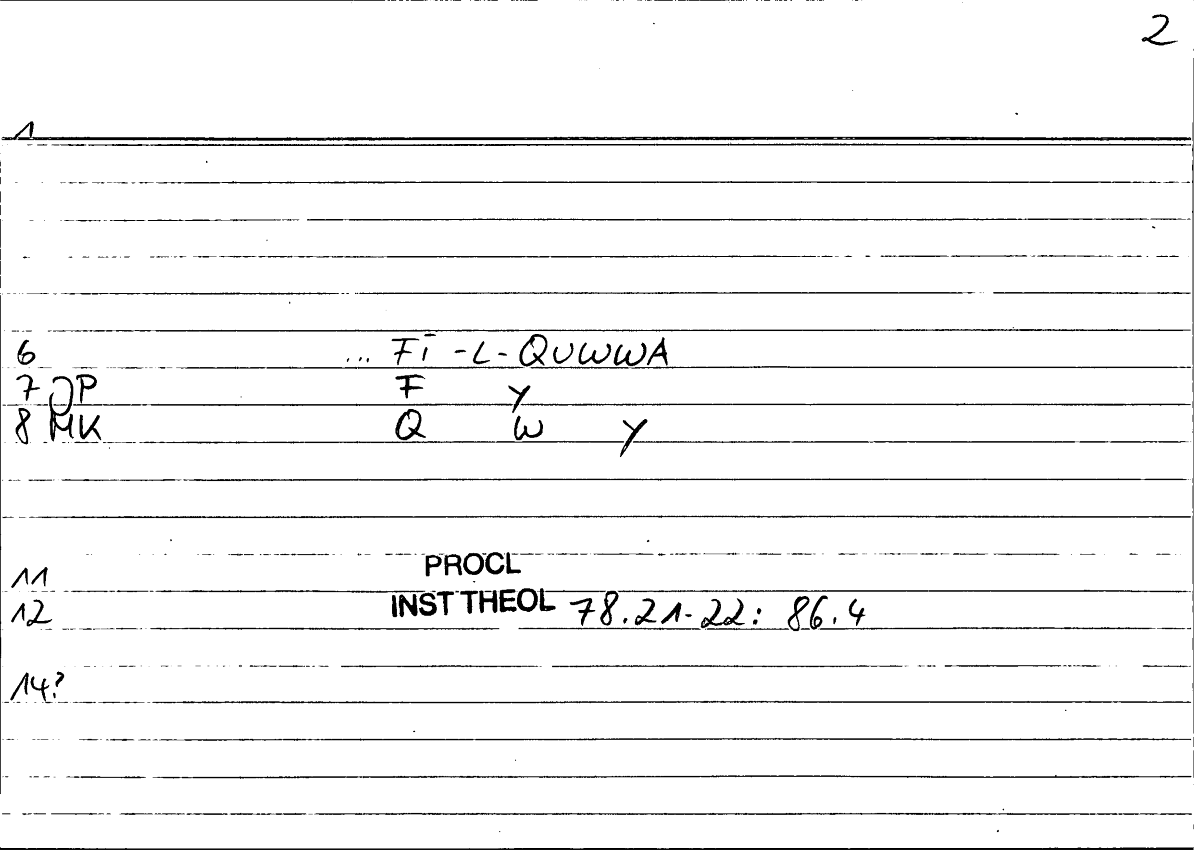 2
1
6 ... Fī -L- QUWWA
7 JP F Y
8 MK Q W Y
11 PROCL
12 INST THEOL 78.21-22: 86.4
14?